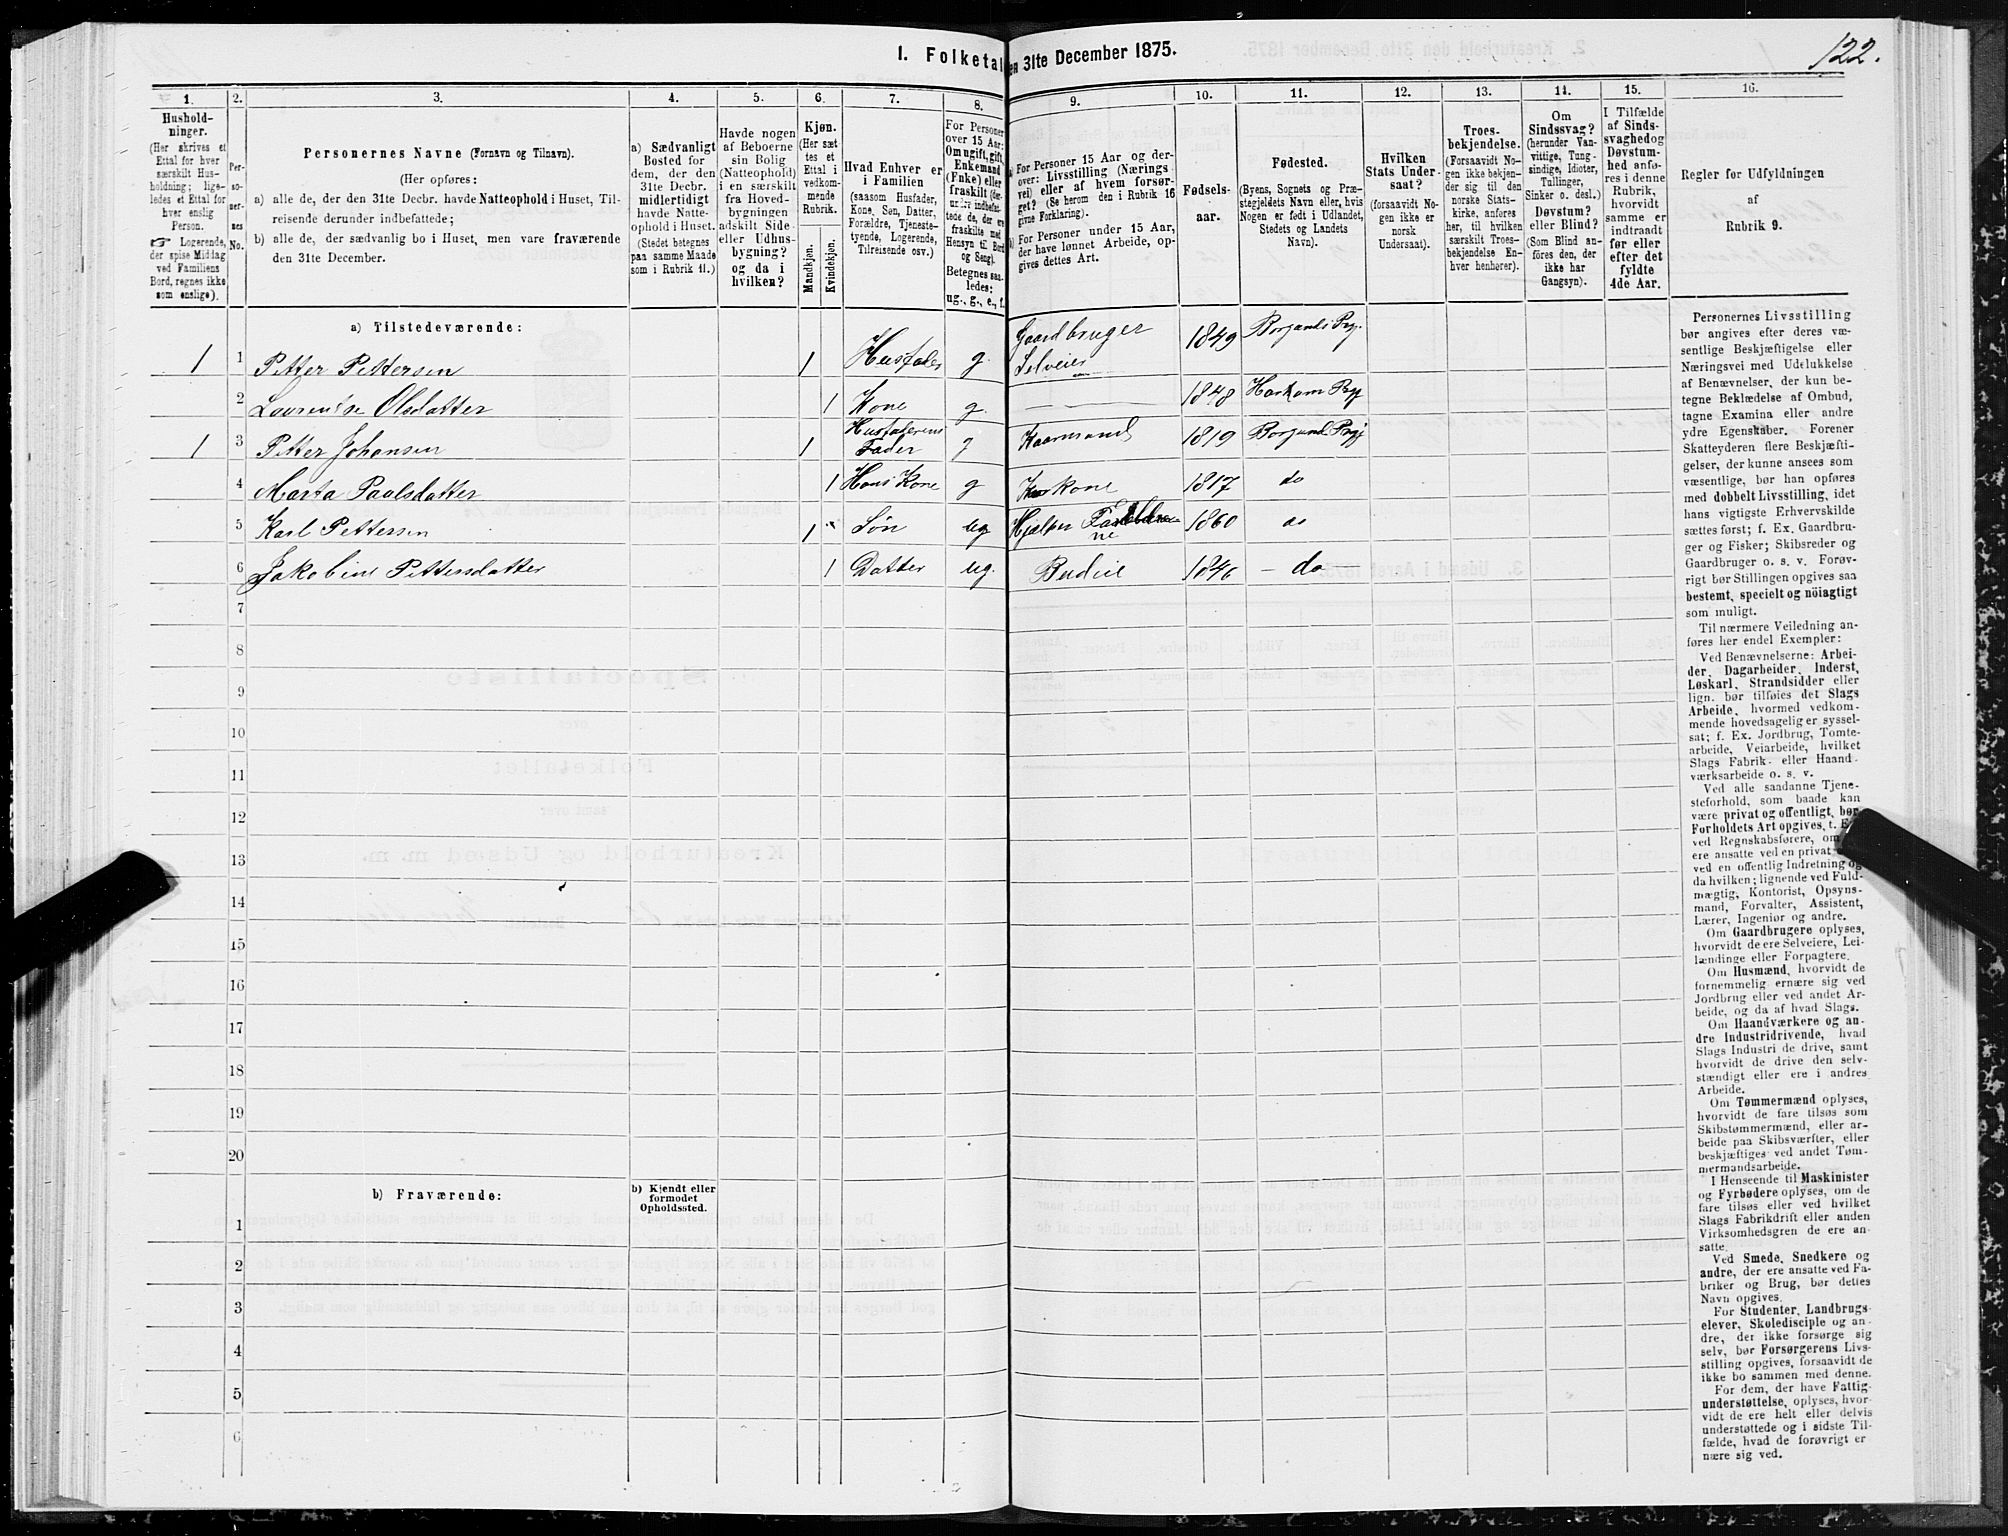 122.
I. Folketal
en 31te December 1875.
1. 2. 3. 4. 5. 6. 7. 8. 9. 10. 11. 12. 13. 14. 15. 16.
Hushold-
ninger.
(Her skrives et
Ettal for hver
særskilt Hus-
holdning; lige-
ledes et Ettal for
hver enslig
Person.
☞ Logerende,
der spise Middag
ved Familiens
Bord, regnes ikke
som enslige).
Per-
so-
ner-
nes
No.
Personernes Navne (Fornavn og Tilnavn).
(Her opføres:
a) alle de, der den 31te Decbr. havde Natteophold i Huset, Til-
reisende derunder indbefattede;
b) alle de, der sædvanlig bo i Huset, men vare fraværende
den 31te December.
a) Sædvanligt
Bosted for
dem, der den
31te Decbr.
midlertidigt
havde Natte-
ophold i Huset.
(Stedet betegnes
paa samme Maade
som i Rubrik 11.)
Havde nogen
af Beboerne
sin Bolig
(Natteophold)
i en særskilt
fra Hoved-
bygningen
adskilt Side-
eller Udhus-
bygning?
og da i
hvilken?
Kjøn.
(Her sæt
tes et
Ettal i
vedkom-
mende
Rubrik.
Mandkjøn.
Kvindekjøn.
Hvad Enhver er
i Familien
(saasom Husfader,
Kone, Søn, Datter,
Forældre, Tjeneste-
tyende, Logerende,
Tilreisende osv.)
For Personer
over 15 Aar:
Om ugift, gift,
Enkemand
(Enke) eller
fraskilt (der-
under indbefat-
tede de, der ere
fraskilte med
Hensyn til Bord
og Seng).
Betegnes saa-
ledes:
ug., g., e., f.
a) For Personer 15 Aar og der-
over: Livsstilling (Nærings
vei) eller af hvem forsør-
get? (Se herom den i Rubrik 16
givne Forklaring).
b) For Personer under 15 Aar,
der have lønnet Arbeide, op-
gives dettes Art.
Fødsels-
aar.
Fødested.
(Byens, Sognets og Præ-
stegjeldets Navn eller, hvis
Nogen er født i Udlandet,
Stedets og Landets
Navn).
Hvilken
Stats Under-
saat?
(forsaavidt No-
gen ikke er
norsk
Undersaat).
Troes-
bekjendelse.
(Forsaavidt No-
gen ikke bekjen-
der sig til den
norske Stats-
kirke, anføres
her, til hvilken
særskilt Troes-
bekjendelse En-
hver henhører).
Om
Sindssvag?
(herunder Van-
vittige, Tung-
sindige, Idioter,
Tullinger,
Sinker o. desl.)
Døvstum?
eller Blind?
(Som Blind an-
føres den, der
ikke har
Gangsyn).
I Tilfælde
af Sinds-
svaghed og
Døvstum-
hed anfø-
res i denne
Rubrik,
hvorvidt
samme er
indtraadt
før eller
efter det
fyldte
4de Aar.
Regler for Udfyldningen
af
Rubrik 9.
a) Tilstedeværende:
1 1 Petter Pettersen 1 Husfader g. Gaardbruger Selveier 1849 Borgunds Prg.
2 Laurentse Olsdatter 1 Kone g. 1848 Harham Prg
1 3 Petter Johansen 1 Husfaderens Fader g Kaarmand 1819 Borgunds Prgj
4 Marta Paulsdatter 1 Hans Kone g Karkone 1817 do
5 Karl Pettersen 1 Søn ug Hjælper Forældrene 1860 do
6 Jakobine Pettersdatter 1 Datter ug. Budeie 1846 – do –
7
8
9
10
11
12
13
14
15
16
17
18
19
20
b) Fraværende:
b) Kjendt eller
formodet
Opholdssted.
1
2
3
4
5
6
Personernes Livsstilling
bør angives efter deres væ-
sentlige Beskjæftigelse eller
Næringsvei med Udelukkelse
af Benævnelser, der kun be-
tegne Beklædelse af Ombud,
tagne Examina eller andre
ydre Egenskaber. Forener
Skatteyderen flere Beskjæfti-
gelser, der kunne ansees som
væsentlige, bør han opføres
med dobbelt Livsstilling, idet
hans vigtigste Erhvervskilde
sættes først; f. Ex. Gaardbru-
ger og Fisker; Skibsreder og
Gaardbruger o. s. v. Forøv-
rigt bør Stillingen opgives saa
bestemt, specielt og nöiagtigt
som muligt.
Til nærmere Veiledning an-
føres her endel Exempler:
Ved Benævnelserne: Arbei-
der, Dagarbeider, Inderst,
Løskarl, Strandsidder eller
lign. bør tilføies det Slags
Arbeide, hvormed vedkom-
mende hovedsagelig er syssel-
sat; f. Ex. Jordbrug, Tomte-
arbeide, Veiarbeide, hvilket
Slags Fabrik- eller Haand-
værksarbeide o. s. v.
Ved alle saadanne Tjene-
steforhold, som baade kan
være privat og offentligt, bør
Forholdets Art opgives, t. E
ved Regnskabsførere, om
ere ansatte ved en privat
ved en offentlig Indretning og
da hvilken; lignende ved Fuld-
mægtig, Kontorist, Opsyns-
mand, Forvalter, Assistent,
Lærer, Ingeniør og andre.
Om Gaardbrugere oplyses,
hvorvidt de ere Selveiere, Lei-
lændinge eller Forpagtere.
Om Husmænd, hvorvidt de
fornemmelig ernære sig ved
Jordbrug eller ved andet Ar-
beide, og da af hvad Slags.
Om Haandværkere og an-
dre Industridrivende, hvad
Slags Industri de drive, samt
hvorvidt de drive den selv-
stændigt eller ere i andres
Arbeide.
Om Tømmermænd oplyses,
hvorvidt de fare tilsøs som
Skibstømmermænd, eller ar-
beide paa Skibsværfter, eller
beskjæftiges ved andet Tøm-
mermandsarbeide.
I Henseende til Maskinister
og Fyrbødere oplyses, om de
fare tilsøs eller ved hvilket
Slags Fabrikdrift eller anden
Virksomhedsgren de ere an-
satte.
Ved Smede, Snedkere og
andre, der ere ansatte ved Fa-
briker og Brug, bør dettes
Navn opgives.
For Studenter, Landbrugs-
elever, Skoledisciple og an-
dre, der ikke forsørge sig
selv, bør Forsørgerens Livs-
stilling opgives, forsaavidt de
ikke bo sammen med denne.
For dem, der have Fattig-
understøttelse, oplyses, hvor-
vidt de ere helt eller delvis
understøttede og i sidste Til-
fælde, hvad de forøvrigt er
nære sig ved.